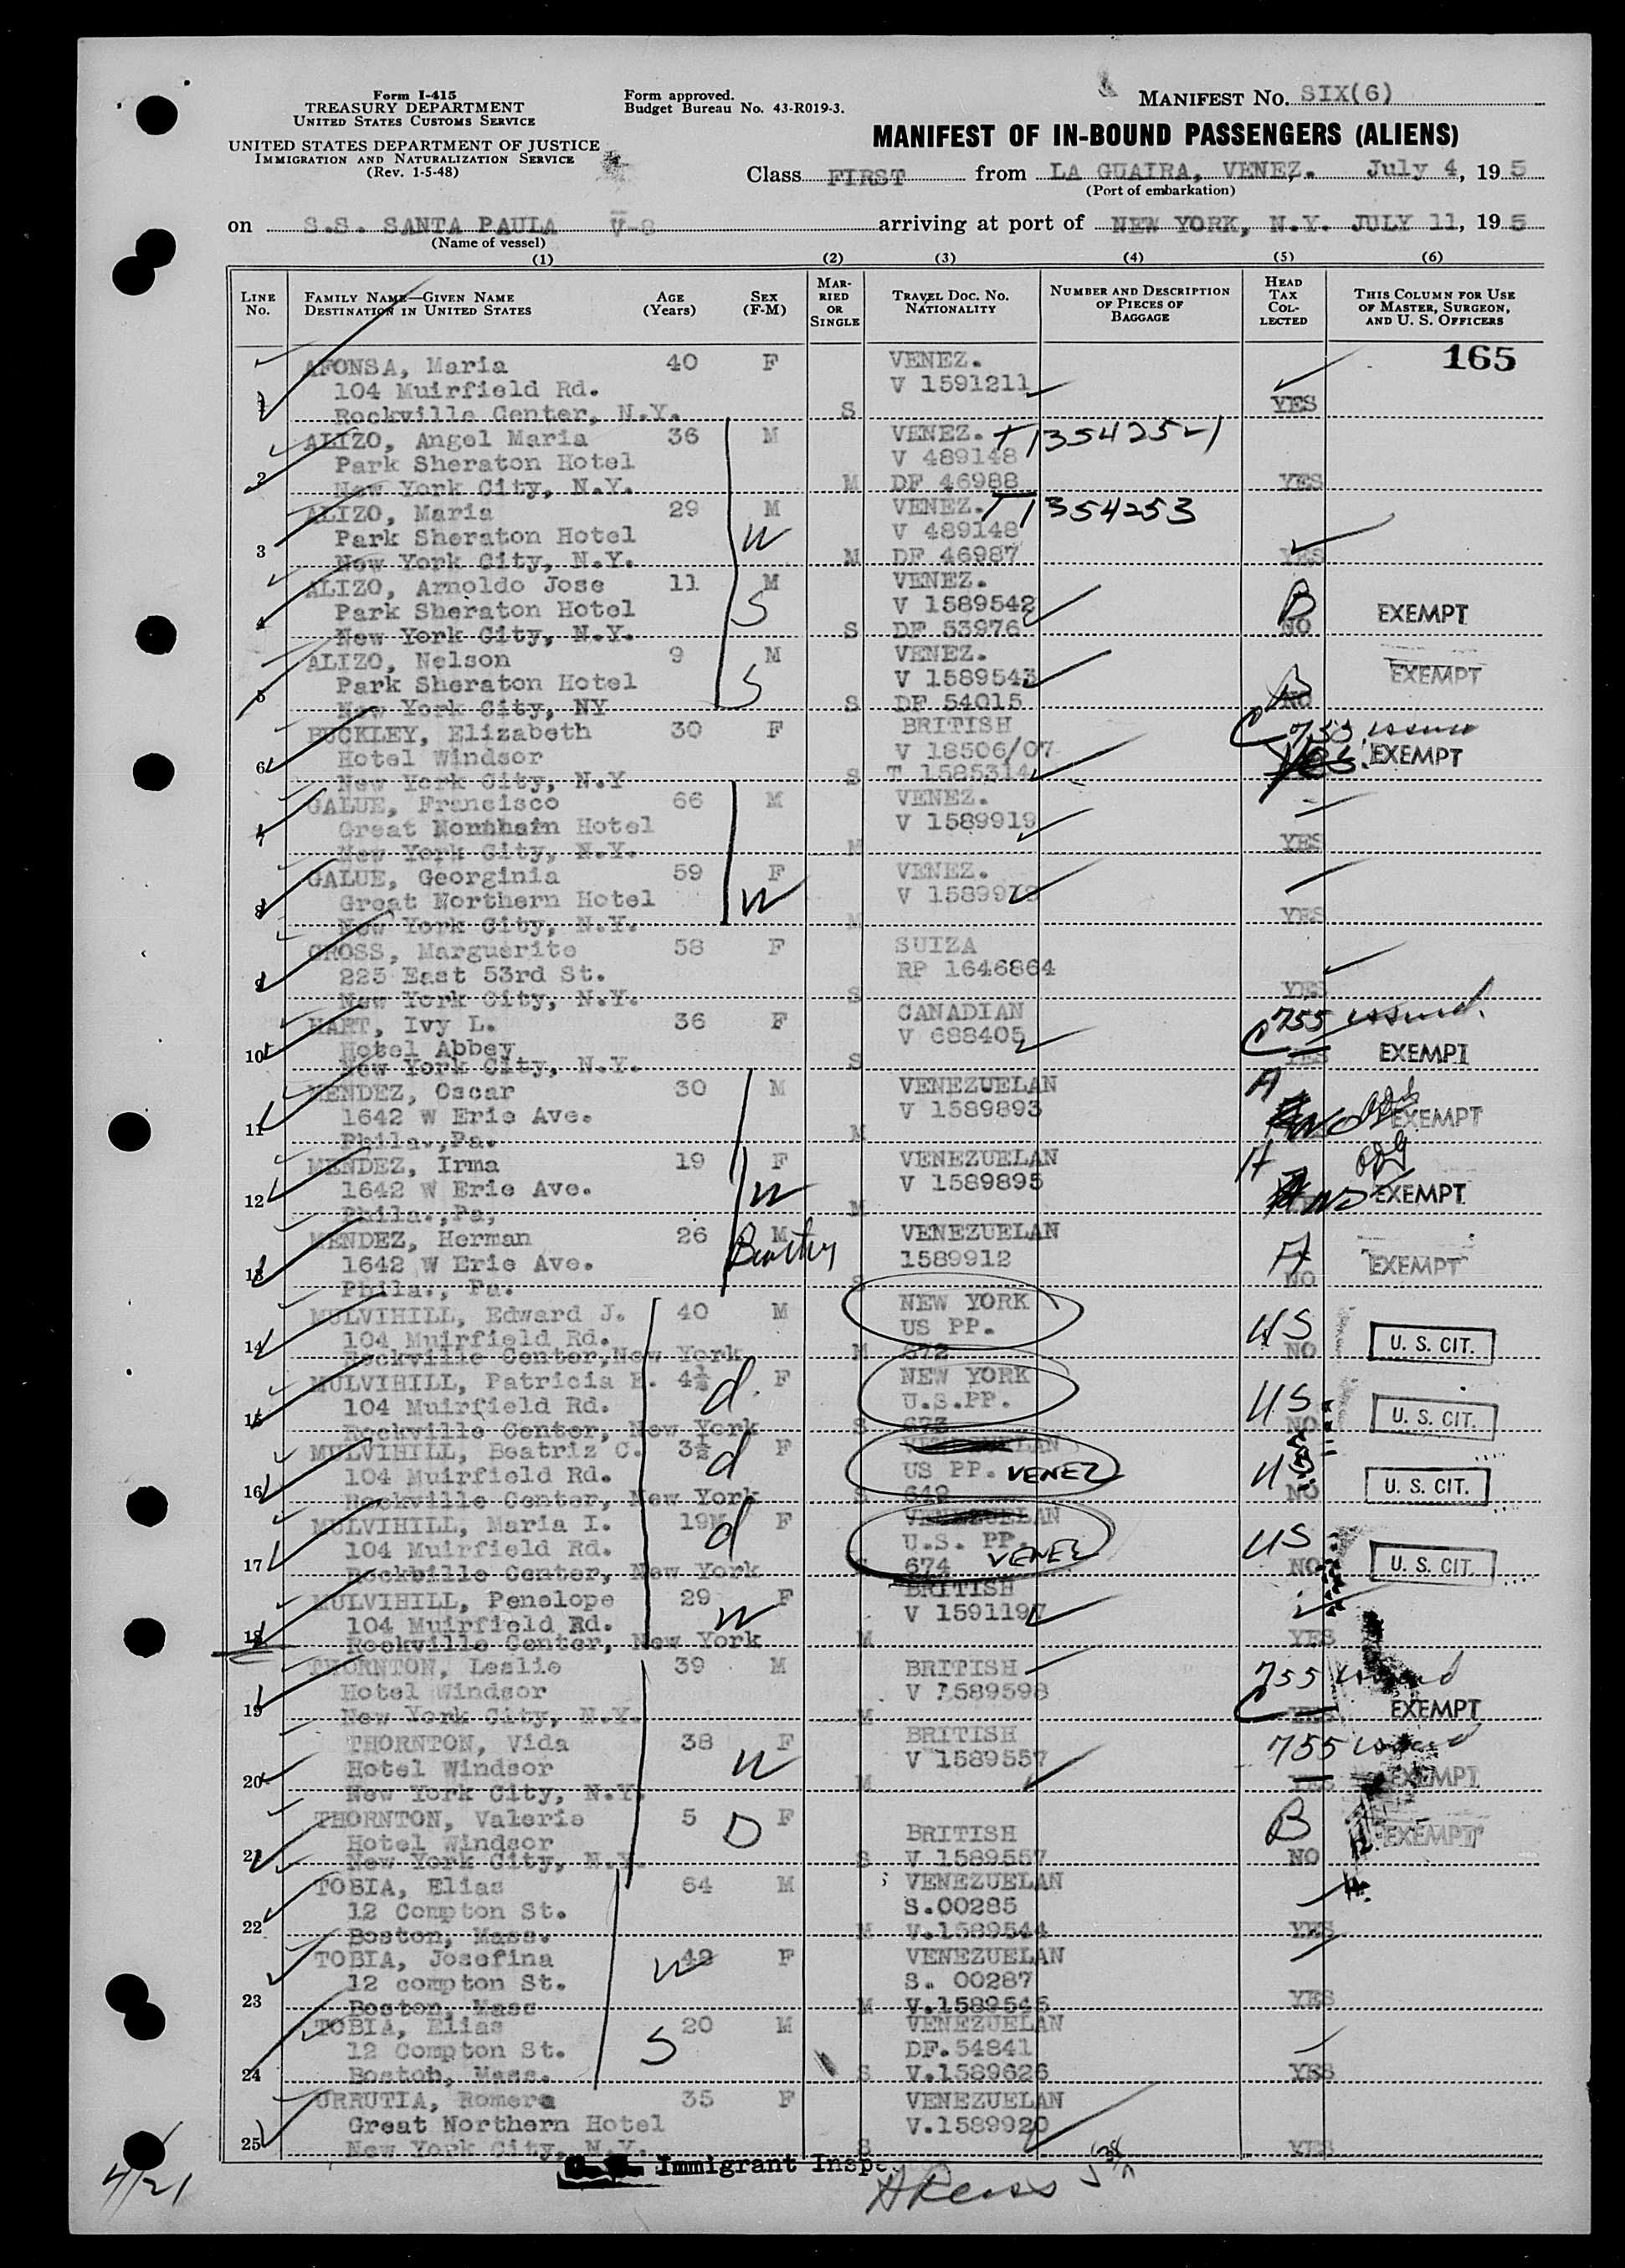 Form I-415
TREASURY DEPARTMENT
UNITED STATES CUSTOMS SERVICE
UNITED STATES DEPARTMENT OF JUSTICE
IMMIGRATION AND NATURALIZATION SERVICE
(Rev. 1-5-48)
Form approved.
Budget Bureau No. 43-R019-3.
MANIFEST NO. SIX(6)
MANIFEST OF IN-BOUND PASSENGERS (ALIENS)
Class FIRST from LA GUAIRA, VENEZ. July 4, 195
(Port of embarkation)
on S.S. SANTA PAULA arriving at port of NEW YORK, N.Y. JULY 11, 195
(Name of vessel)
(1) (2) (3) (4) (5) (6)
LINE NO.
FAMILY NAME—GIVEN NAME
DESTINATION IN UNITED STATES
AGE (Years)
SEX (F-M)
MARRIED OR SINGLE
TRAVEL DOC. NO. NATIONALITY
NUMBER AND DESCRIPTION OF PIECES OF BAGGAGE
HEAD TAX COLLECTED
THIS COLUMN FOR USE OF MASTER, SURGEON, AND U. S. OFFICERS
165
AFONSA, Maria 40 F VENEZ.
104 Muirfield Rd. V 1591211
1 Rockville Center, N.Y. S YES
ALIZO, Angel Maria 36 M VENEZ. T1354252-1
Park Sheraton Hotel V 489148
2 New York City, N.Y. M DF 46988 YES
ALIZO, Maria 29 M VENEZ. T1354253
Park Sheraton Hotel W V 489148
3 New York City, N.Y. M DF 46987 YES
ALIZO, Arnoldo Jose 11 M VENEZ.
Park Sheraton Hotel S V 1589542 B EXEMPT
4 New York City, N.Y. S DF 53976 NO
ALIZO, Nelson 9 M VENEZ. EXEMPT
Park Sheraton Hotel S V 1589543 B
5 New York City, NY S DF 54015 NO
BUCKLEY, Elizabeth 30 F BRITISH C 755 issued
Hotel Windsor V 18506/07 EXEMPT
6 New York City, N.Y S T 1585314 Yes
GALUE, Francisco 66 M VENEZ.
Great Honhhain Hotel V 1589919
7 New York City, N.Y. M YES
GALUE, Georginia 59 F VENEZ.
Great Northern Hotel W V 1589918
8 New York City, N.Y. M YES
GROSS, Marguerite 58 F SUIZA
225 East 53rd St. RP 1646864
9 New York City, N.Y. S YES
HART, Ivy L. 36 F CANADIAN C 755 issued.
Hotel Abbey V 688405 EXEMPT
10 New York City, N.Y. S YES
MENDEZ, Oscar 30 M VENEZUELAN A
1642 W Erie Ave. V 1589893 NO EXEMPT
11 Phila.,Pa. M
MENDEZ, Irma 19 F VENEZUELAN A
1642 W Erie Ave. W V 1589895 NO EXEMPT
12 Phila.,Pa, M
MENDEZ, Herman 26 M VENEZUELAN
1642 W Erie Ave. Brother 1589912 A EXEMPT
13 Phila., Pa. S NO
MULVIHILL, Edward J. 40 M NEW YORK
104 Muirfield Rd. US PP. US U. S. CIT.
14 Rockville Center,New York M 672 NO
MULVIHILL, Patricia E. 4½ d. F NEW YORK
104 Muirfield Rd. U.S.PP. US U. S. CIT.
15 Rockville Center, New York S 673 NO
MULVIHILL, Beatriz C. 3½ d F VENEZUELAN
104 Muirfield Rd. US PP. VENEZ US U. S. CIT.
16 Rockville Center, New York S 648 NO
MULVIHILL, Maria I. 19M d F VENEZUELAN
104 Muirfield Rd. U.S. PP. VENEZ US U. S. CIT.
17 Rockbille Center, New York S 674 NO
MULVIHILL, Penelope 29 W F BRITISH
104 Muirfield Rd. V 1591197
18 Rockville Center, New York M YES
THORNTON, Leslie 39 M BRITISH 755 issued
Hotel Windsor V 1589598 C EXEMPT
19 New York City, N.Y. M YES
THORNTON, Vida 38 F BRITISH 755 issued
Hotel Windsor W V 1589557 EXEMPT
20 New York City, N.Y. M YES
THORNTON, Valerie 5 D F B
Hotel Windsor BRITISH EXEMPT
21 New York City, N.Y. S V 1589557 NO
TOBIA, Elias 64 M VENEZUELAN
12 Compton St. S.00285
22 Boston, Mass. M V.1589544 YES
TOBIA, Josefina 48 W F VENEZUELAN
12 compton St. S. 00287
23 Boston, Mass M V.1589545 YES
TOBIA, Elias 20 M VENEZUELAN
12 Compton St. S DF.54841
24 Boston, Mass. S V.1589626 YES
URRUTIA, Romera 35 F VENEZUELAN
Great Northern Hotel V.1589920
25 New York City, N.Y. S YES
Immigrant Inspe
4/21